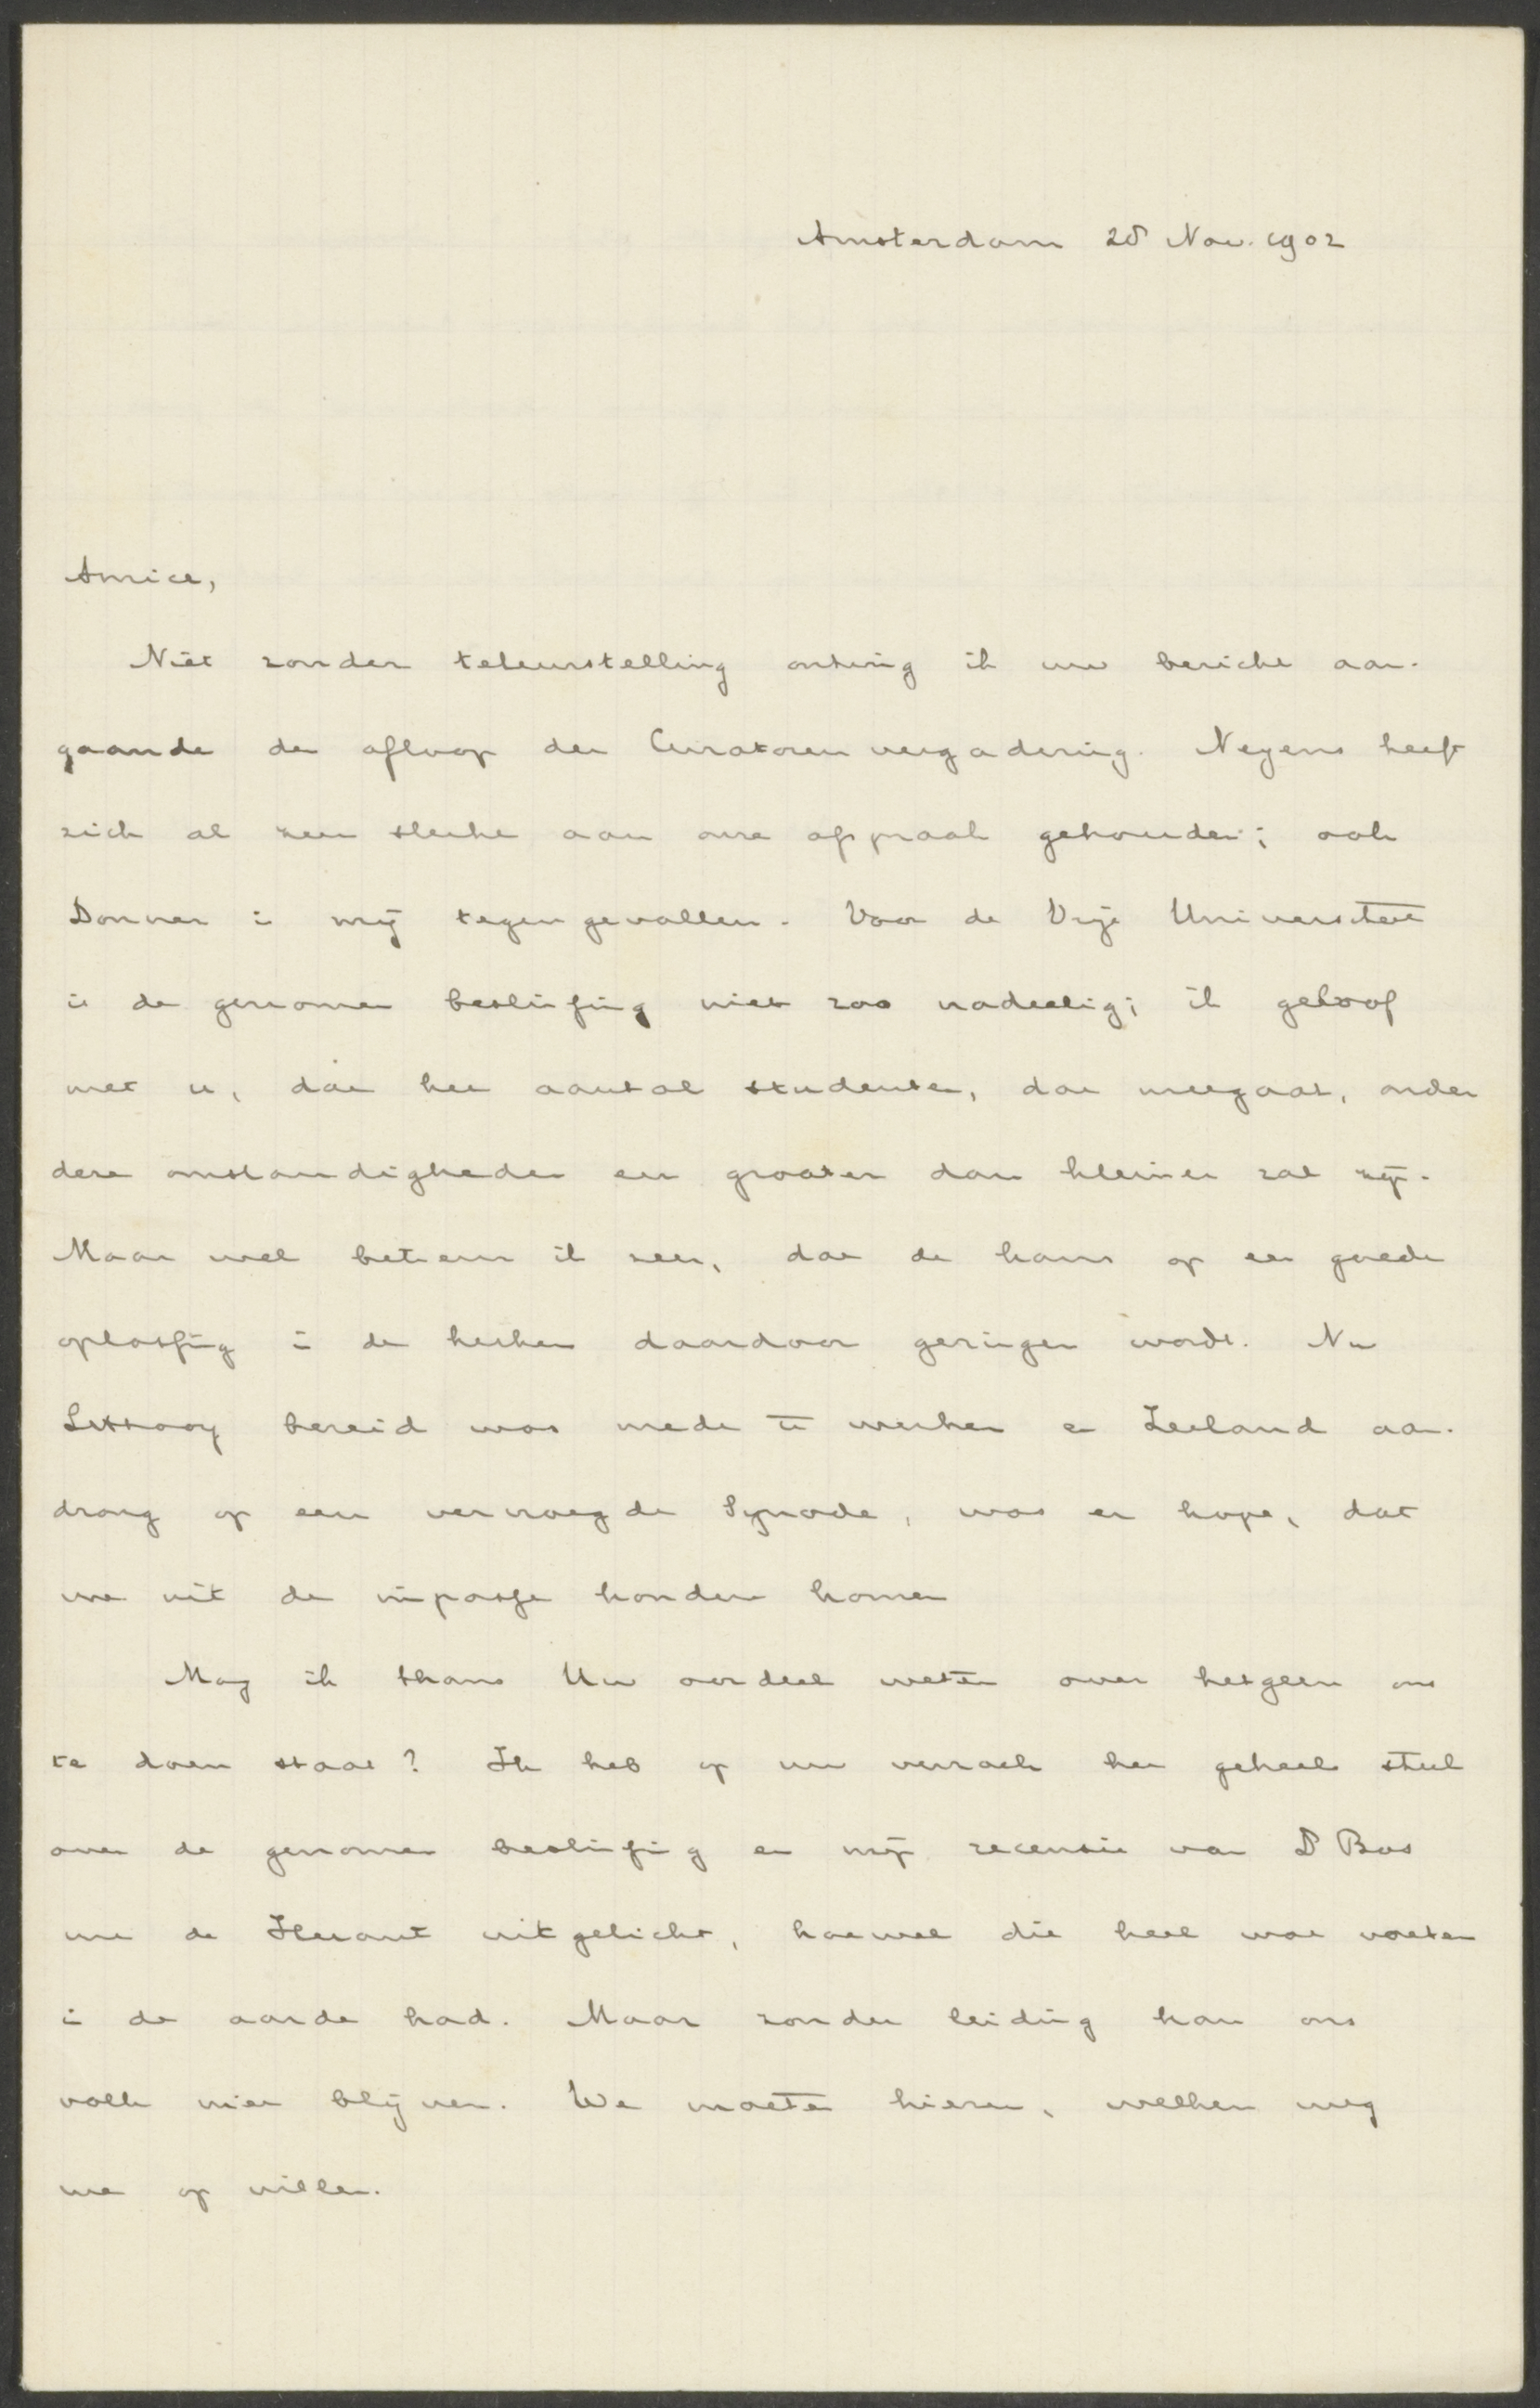 Amsterdam 28 Nov. 1902
Amice,
Niet zonder teleurstelling ontving ik uw bericht aan-
gaande de afloop der Curatorenvergadering. Neyens heeft
zich al zeer slecht aan onze afspraak gehouden; ook
Donner is mij tegengevallen. Voor de Vrije Universiteit
is de genomen beslissing niet zoo nadeelig; ik geloof
met u, dat het aantal studenten, dat meegaat, onder
deze omstandigheden eer grooter dan kleiner zal zijn.
Maar wel betreur ik zeer, dat de kans op een goede
oplossing in de kerken daardoor geringer wordt. Nu
Littooy bereid was mede te werken en Zeeland aan-
drong op een vervroegde Synode, was er hope, dat
we uit de impasse konden komen
Mag ik thans Uw oordeel weten over hetgeen ons
te doen staat? Ik heb op uw verzoek het geheele stuk
over de genomen beslissing en mijn recensie van Dr Bos
uit de Heraut uitgelicht, hoewel die heel wat voeten
in de aarde had. Maar zonder leiding kan ons
volk niet blijven. We moeten kiezen, welken weg
we op willen.